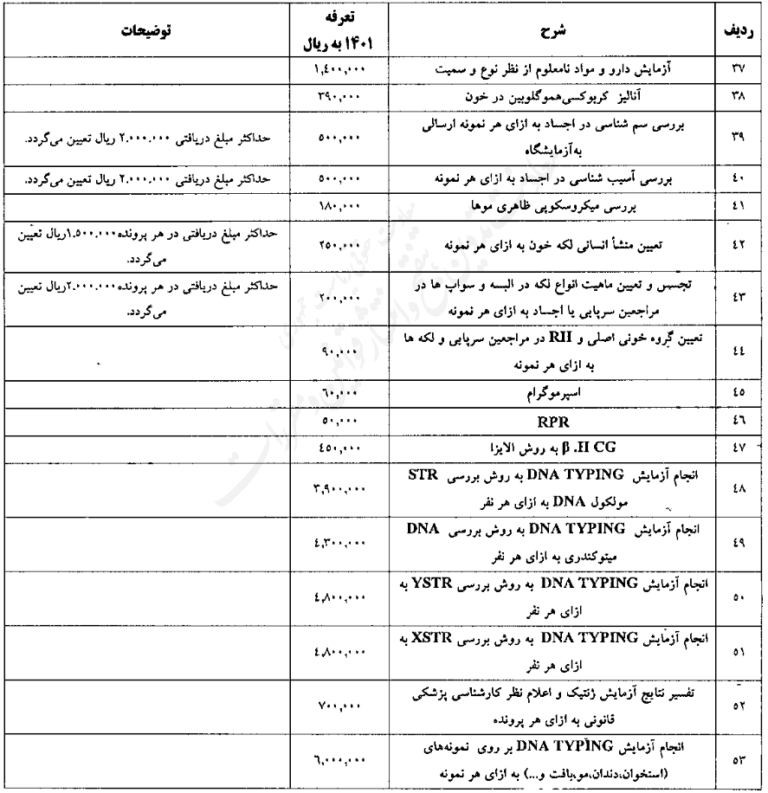 ردیف شرح تعرفه ۱۴۰۱ به ریال توضیحات
۳۷ آزمایش دارو و مواد نامعلوم از نظر نوع و سمیت ۱,۴۰۰,۰۰۰
۳۸ آنالیز کربوکسی‌هموگلوبین در خون ۳۹۰,۰۰۰
۳۹ بررسی سم شناسی در اجساد به ازای هر نمونه ارسالی
به‌آزمایشگاه ۵۰۰,۰۰۰ حداکثر مبلغ دریافتی ۲.۰۰۰.۰۰۰ ریال تعیین می‌گردد.
۴۰ بررسی آسیب شناسی در اجساد به ازای هر نمونه ۵۰۰,۰۰۰ حداکثر مبلغ دریافتی ۲.۰۰۰.۰۰۰ ریال تعیین می‌گردد.
۴۱ بررسی میکروسکوپی ظاهری موها ۱۸۰,۰۰۰
۴۲ تعیین منشأ انسانی لکه خون به ازای هر نمونه ۲۵۰,۰۰۰ حداکثر مبلغ دریافتی در هر پرونده۱.۵۰۰.۰۰۰ریال تعیین
می‌گردد.
۴۳ تجسس و تعیین ماهیت انواع لکه در البسه و سواب ها در
مراجعین سرپایی یا اجساد به ازای هر نمونه ۲۰۰,۰۰۰ حداکثر مبلغ دریافتی در هر پرونده۲.۰۰۰.۰۰۰ریال تعیین
می‌گردد.
۴۴ تعیین گروه خونی اصلی و RH در مراجعین سرپایی و لکه ها
به ازای هر نمونه ۹۰,۰۰۰
۴۵ اسپرموگرام ۶۰,۰۰۰
۴۶ RPR ۵۰,۰۰۰
۴۷ β .H CG به روش الایزا ۴۵۰,۰۰۰
۴۸ انجام آزمایش DNA TYPING به روش بررسی STR
مولکول DNA به ازای هر نفر ۳,۹۰۰,۰۰۰
۴۹ انجام آزمایش DNA TYPING به روش بررسی DNA
میتوکندری به ازای هر نفر ۴,۳۰۰,۰۰۰
۵۰ انجام آزمایش DNA TYPING به روش بررسی YSTR به
ازای هر نفر ۴,۸۰۰,۰۰۰
۵۱ انجام آزمایش DNA TYPING به روش بررسی XSTR به
ازای هر نفر ۴,۸۰۰,۰۰۰
۵۲ تفسیر نتایج آزمایش ژنتیک و اعلام نظر کارشناسی پزشکی
قانونی به ازای هر پرونده ۷۰۰,۰۰۰
۵۳ انجام آزمایش DNA TYPING بر روی نمونه‌های
(استخوان،دندان،مو،بافت و...) به ازای هر نمونه ۶,۰۰۰,۰۰۰